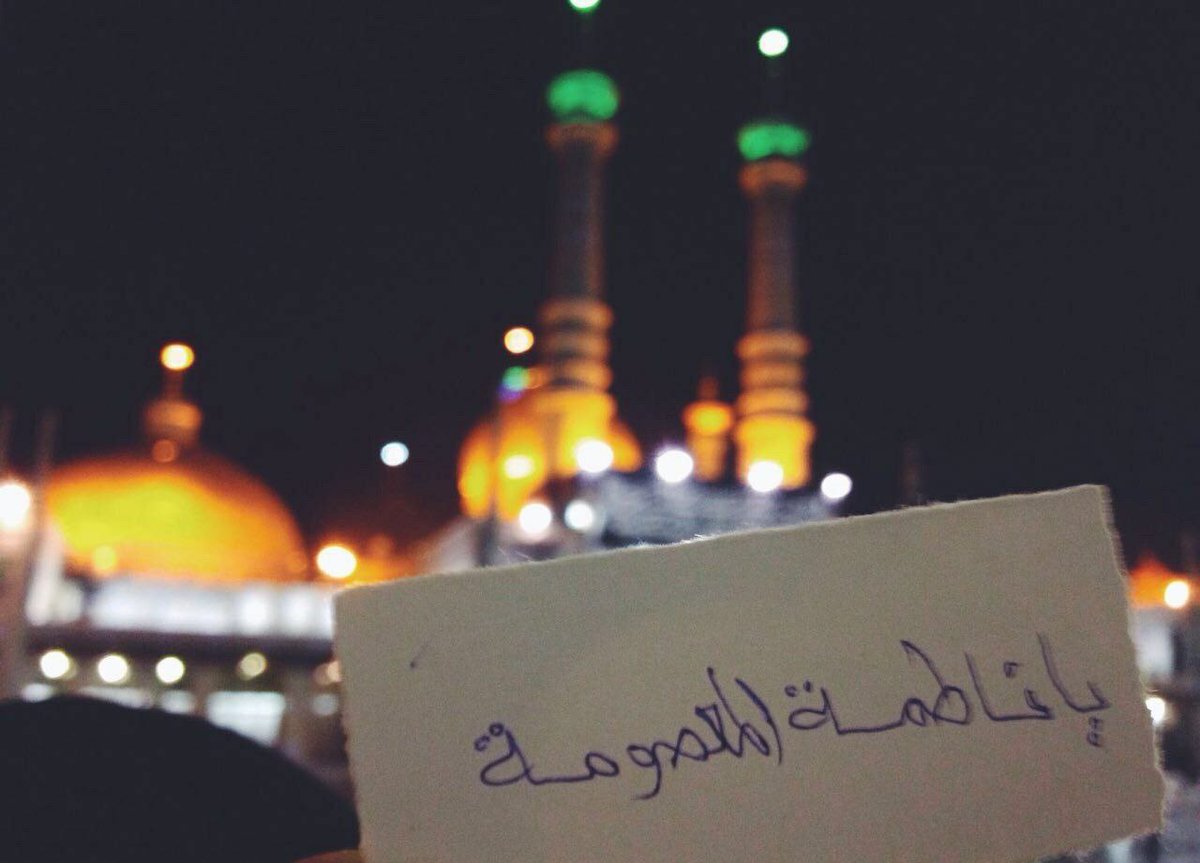 يا فاطمة المعصومة